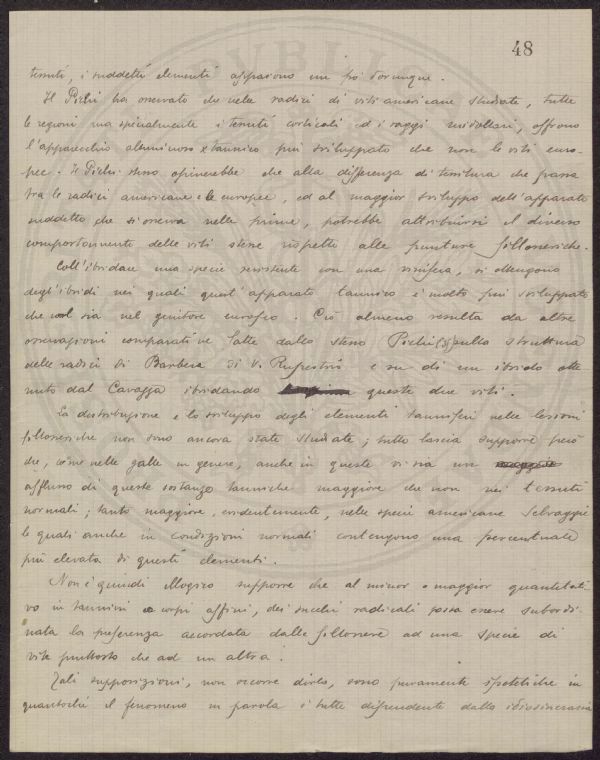 48
PVBLI
tessuti, i suddetti elementi appaiono un po' dovunque.
Il Pichi ha osservato che nelle radici di viti americane studiate, tutte
le regioni ma specialmente i tessuti corticali ed i raggi midollari, offrono
l'apparecchio albuminoso e tannico più sviluppato che non le viti euro-
pee. Il Pichi stesso opinerebbe che alla differenza di tessitura che passa
tra le radici americane e le europee, ed al maggior sviluppo dell'apparato
suddetto che si osserva nelle prime, potrebbe attribuirsi il diverso
comportamento delle viti stesse rispetto alle punture fillosseriche.
Coll'ibridare una specie resistente con una vinifera, si ottengono
degl'ibridi nei quali quest'apparato tannico è molto più sviluppato
che non sia nel genitore europeo. Ciò almeno risulta da altre
osservazioni comparative fatte dallo stesso Pichi sulla struttura
delle radici di Barbera di V. Rupestris e su di un ibrido otte
nuto dal Cavazza ibridando queste due viti.
La distribuzione e lo sviluppo degli elementi tanniferi nelle lesioni
fillosseriche non sono ancora state studiate; tutto lascia supporre però
che, come nelle galle in genere, anche in queste vi sia un
afflusso di queste sostanze tanniche maggiore che non nei tessuti
normali; tanto maggiore, evidentemente, nelle specie americane selvaggie
le quali anche in condizioni normali contengono una percentuale
più elevata di questi elementi.
Non è quindi illogico supporre che al minor o maggior quantitati-
vo in tannini o corpi affini, dei succhi radicali possa essere subordi-
nata la preferenza accordata dalle fillossere ad una specie di
vite piuttosto che ad un altra.
Tali supposizioni, non occorre dirlo, sono puramente ipotetiche in
quantochè il fenomeno in parola è tutto dipendente dalla idiosincrasia